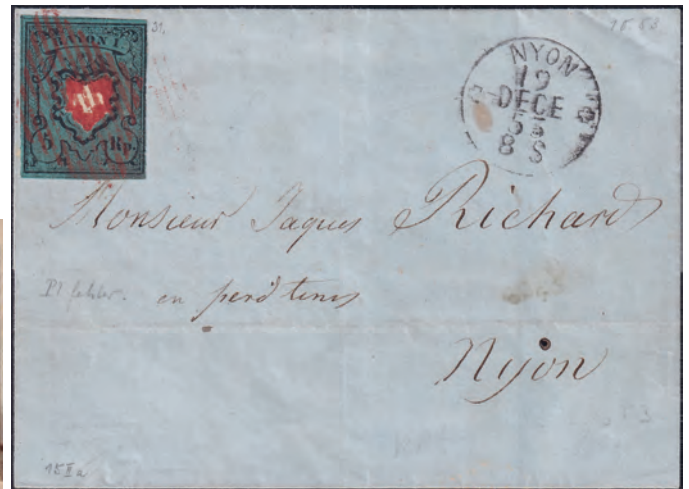 RAYON I.
5 Rp.
31.
NYON
19
DECE
53
8 S
Monsieur Jaques Richard
Pl fehler.
en perd tems
Nyon
15 II a